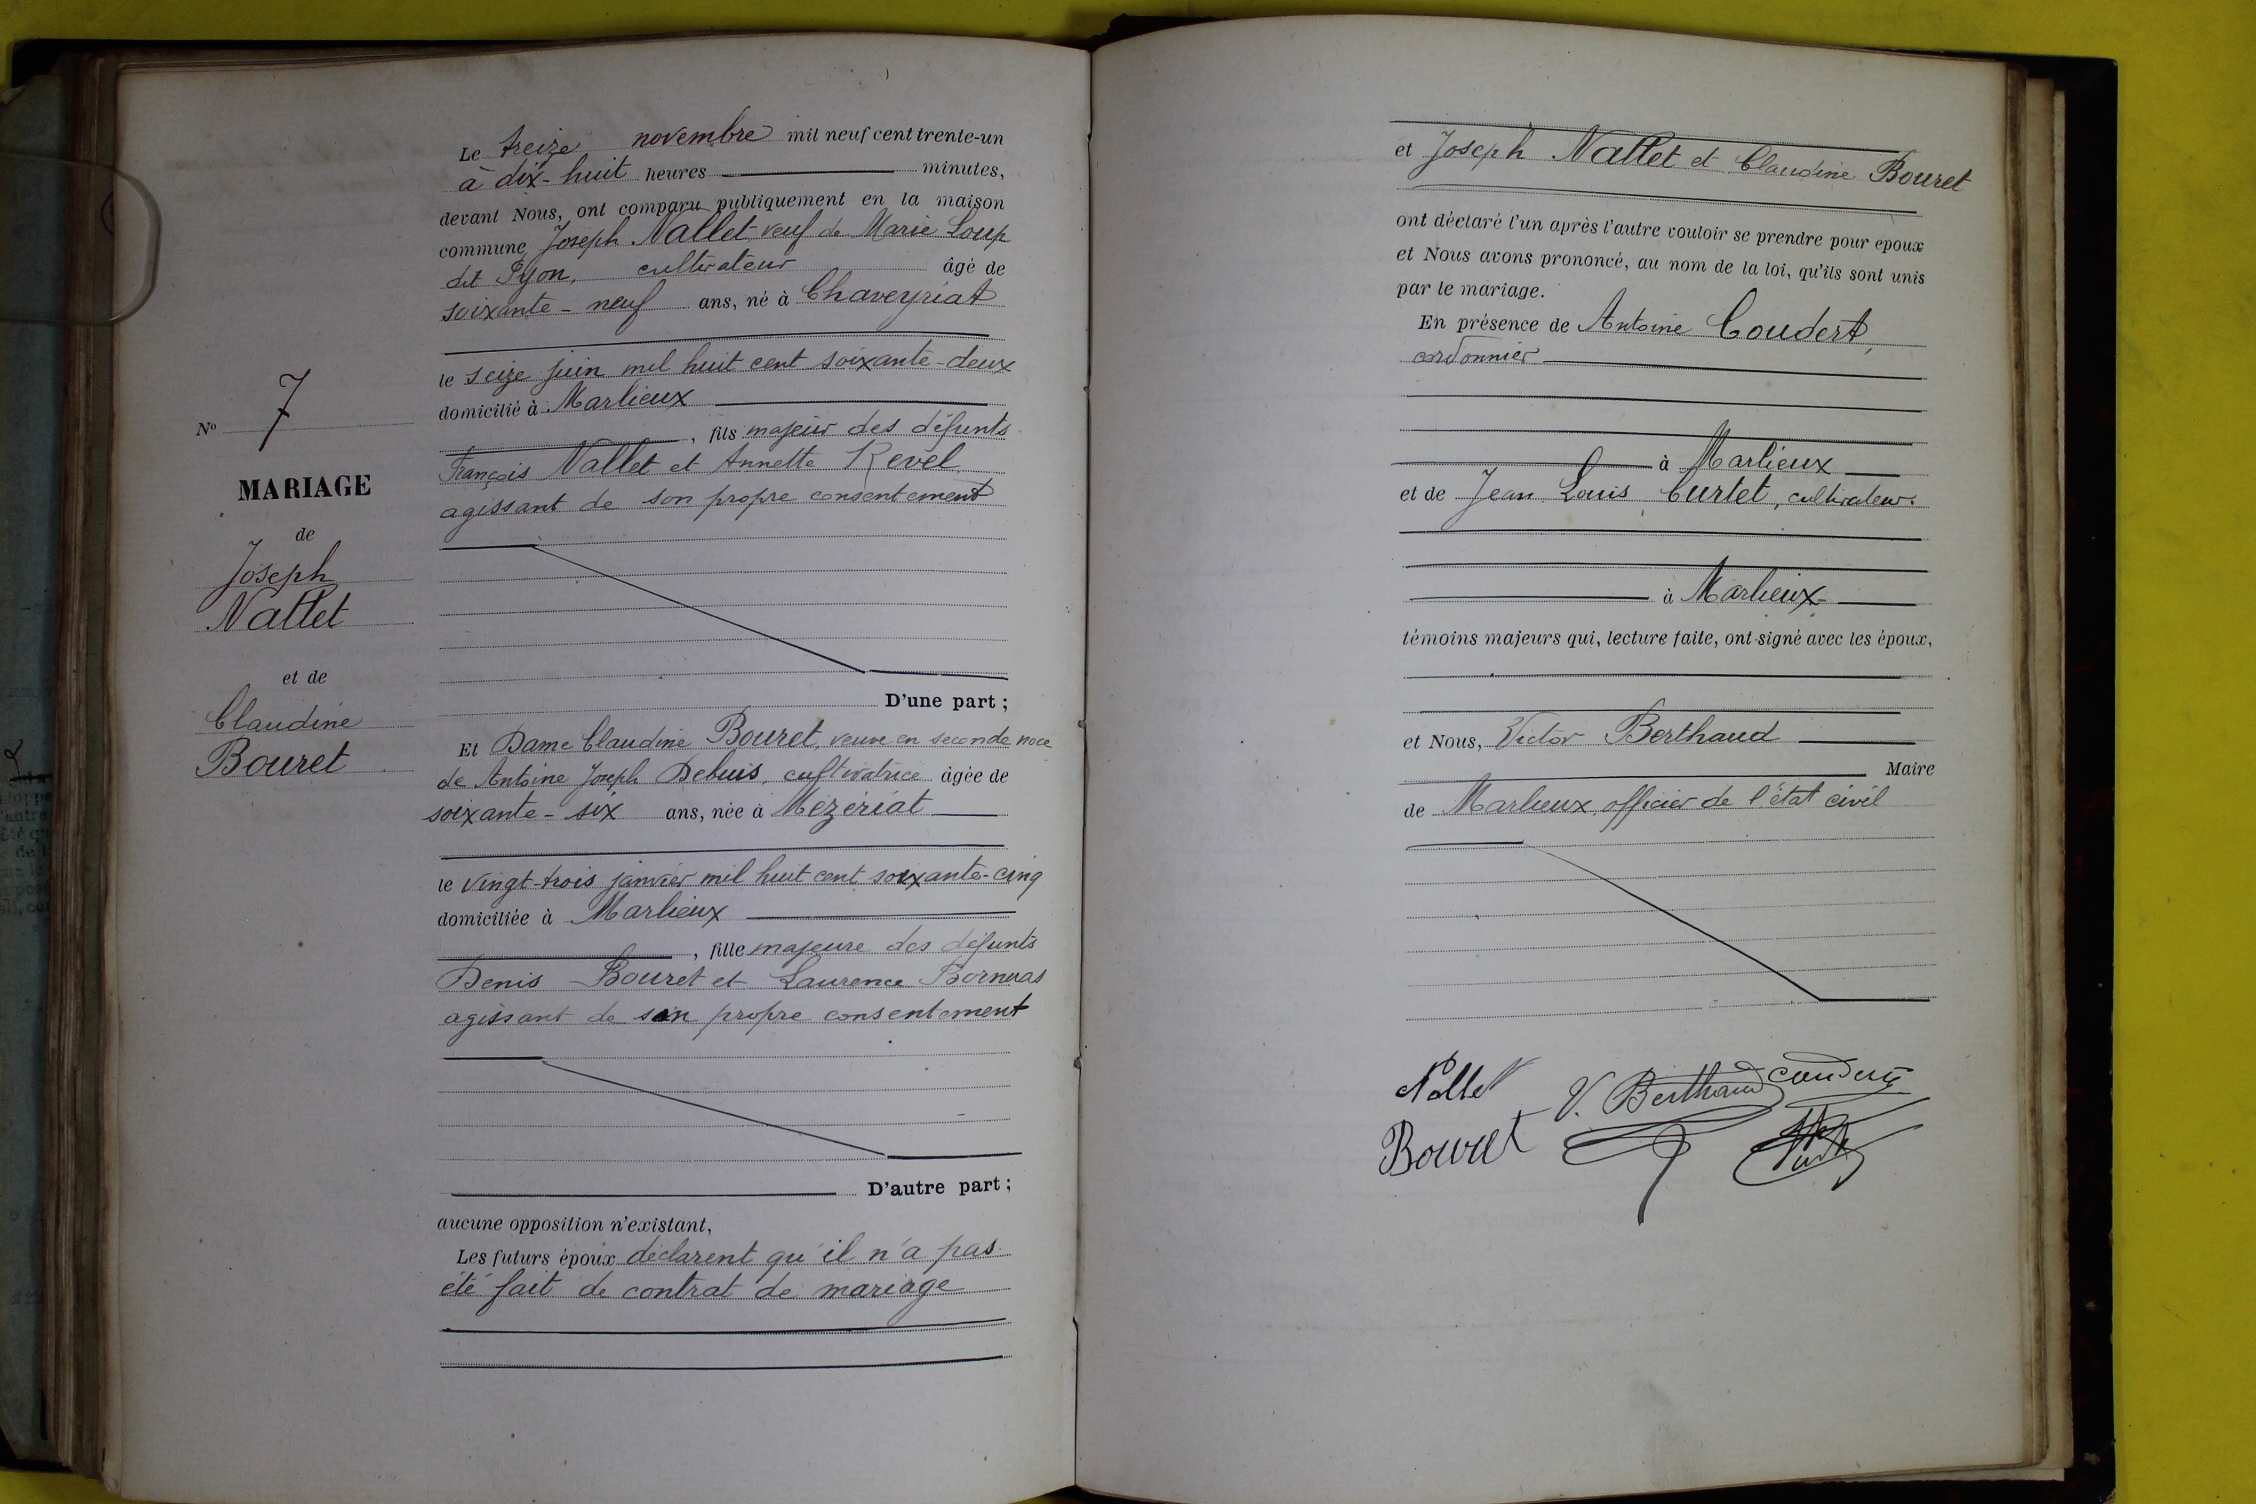 Nº 7
MARIAGE
de
Joseph
Nallet
et de
Claudine
Bouret
Le treize novembre mil neuf cent trente-un
à dix-huit heures minutes,
devant Nous, ont comparu publiquement en la maison
commune Joseph Nallet veuf de Marie Loup
dit Pyon, cultivateur âgé de
soixante-neuf ans, né à Chaveyriat
le seize juin mil huit cent soixante-deux
domicilié à Marlieux
, fils majeur des défunts
François Nallet et Annette Revel
agissant de son propre consentement
D'une part ;
Et Dame Claudine Bouret, veuve en seconde noce
de Antoine Joseph Debuis, cultivatrice âgée de
soixante-six ans, née à Mézériat
le vingt-trois janvier mil huit cent soixante-cinq
domiciliée à Marlieux
, fille majeure des défunts
Denis Bouret et Laurence
agissant de son propre consentement
D'autre part ;
aucune opposition n'existant,
Les futurs époux déclarent qu'il n'a pas
été fait de contrat de mariage
et Joseph Nallet et Claudine Bouret
ont déclaré l'un après l'autre vouloir se prendre pour epoux
et Nous avons prononcé, au nom de la loi, qu'ils sont unis
par le mariage.
En présence de Antoine Coudert,
cordonnier
à Marlieux
et de Jean Louis Curtet, cultivateur.
à Marlieux
témoins majeurs qui, lecture faite, ont signé avec les époux,
et Nous, Victor Berthaud
Maire
de Marlieux, officier de l'état civil
Nallet V. Berthaud Coudert
Bouret